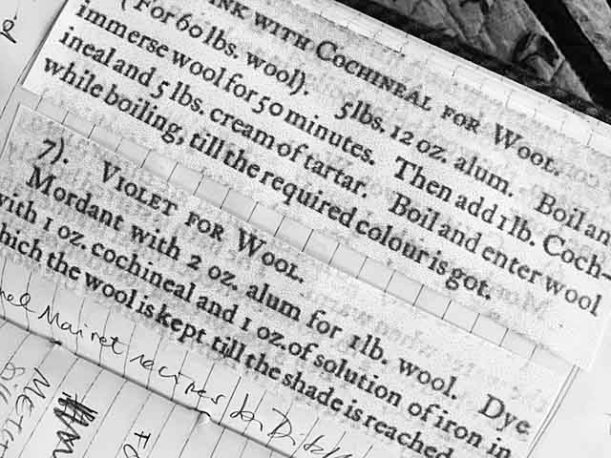 INK WITH COCHINEAL FOR WOOL.
(For 60 lbs. wool). 5lbs. 12 oz. alum. Boil an
immerse wool for 50 minutes. Then add 1 lb. Coch-
ineal and 5 lbs. cream of tartar. Boil and enter wool
while boiling, till the required colour is got.
7). VIOLET FOR WOOL.
Mordant with 2 oz. alum for 1lb. wool. Dye
with 1 oz. cochineal and 1 oz. of solution of iron in
hich the wool is kept till the shade is reached
el Mairet recipes